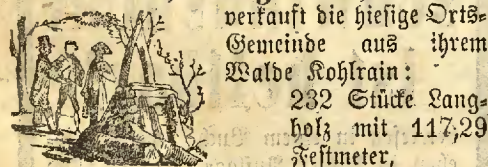 verkauft die hiesige Orts-
Gemeinde aus ihrem
Walde Kohlrain:
232 Stücke Lang-
holz mit 117,29
Festmeter,